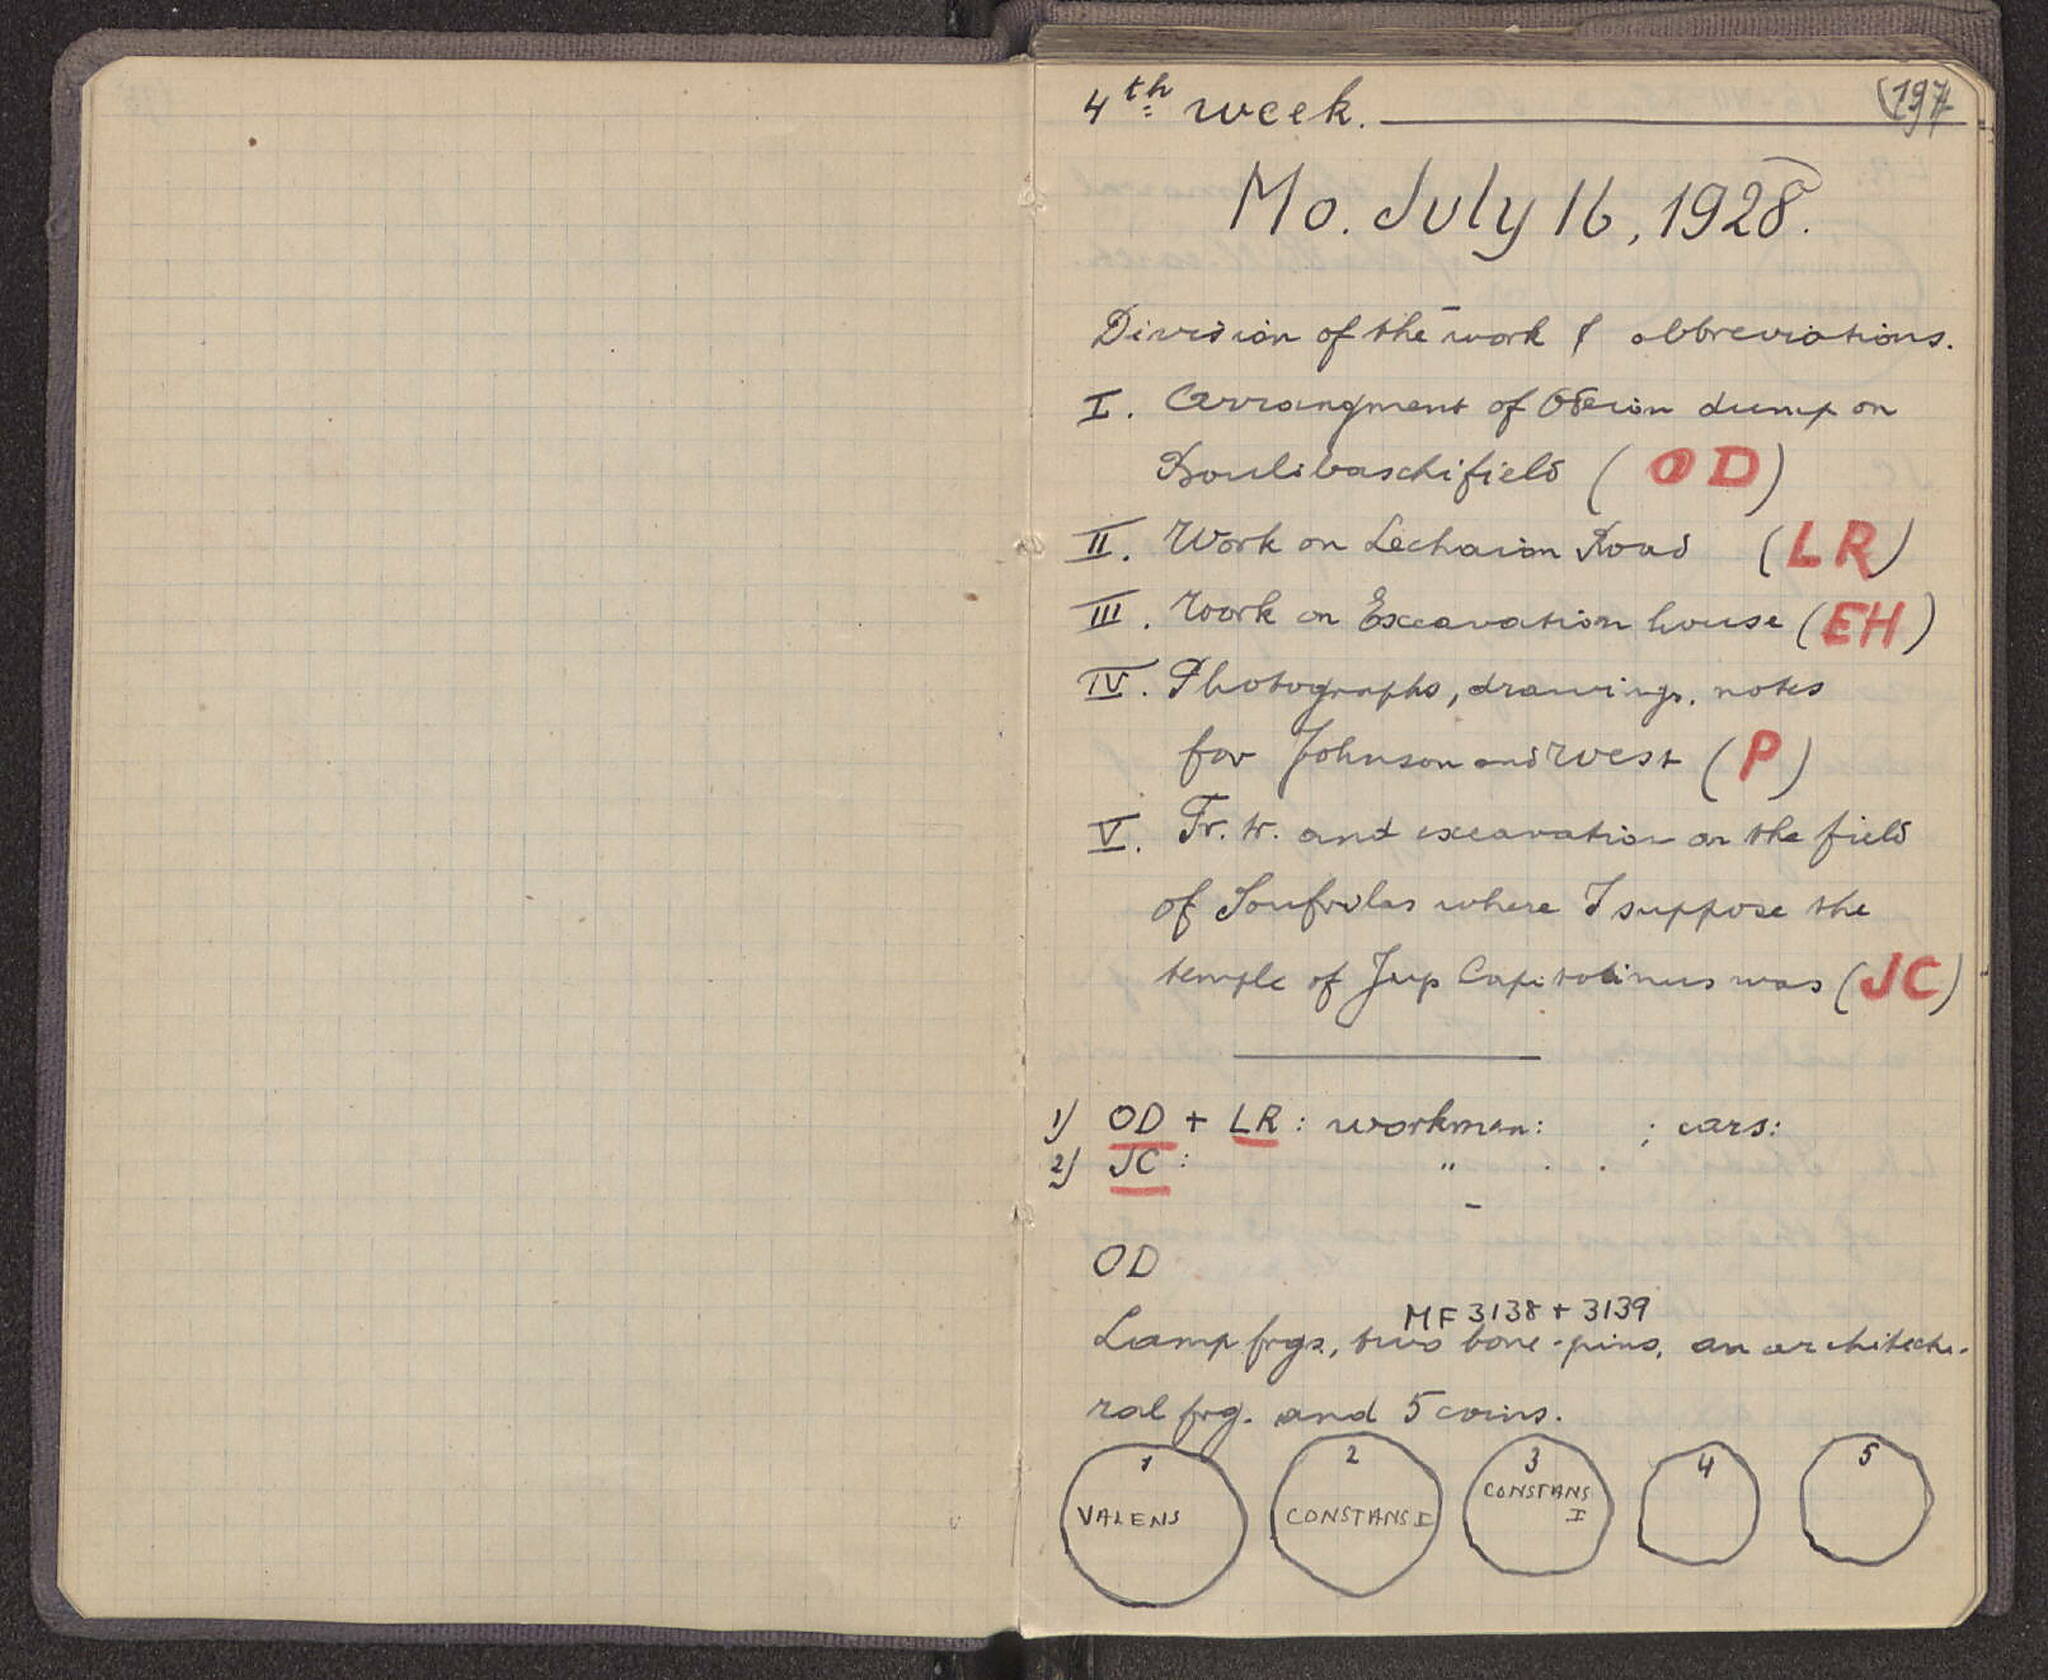 4th week.
197
Mo. July 16, 1928.
Division of the work & abbreviations.
I. Arrangment of Odeion dump on
Boulibaschifield (OD)
II. Work on Lechaion Road (LR)
III. Work on Excavation house (EH)
IV. Photographs, drawings, notes
for Johnson and West (P)
V. Tr. tr. and excavation on the field
of where I suppose the
temple of Jup Capitolinus was (JC)
1) OD + LR: workman: ; cars:
2) JC: " . .
OD
MF 3138 + 3139
Lamp frgs., two bone-pins, an architectu-
ral frg. and 5 coins.
1 2 3 4 5
VALENS CONSTANS I CONSTANS I